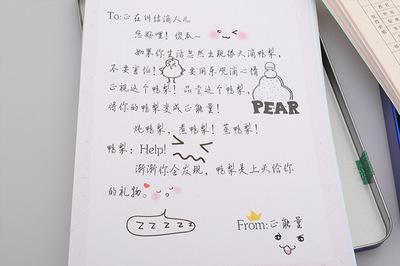 To:正在纠结滴人儿
您好哩！傻瓜~
如果你生活忽然出现很大滴鸭梨，
不要害怕！要用乐观滴心情
正视这个鸭梨！品尝这个鸭梨，
将你的鸭梨变成正能量！
PEAR
炖鸭梨，煮鸭梨！蒸鸭梨！
鸭梨：Help!
渐渐你会发现，鸭梨是上天给你
的礼物。
z z z z z
From:正能量